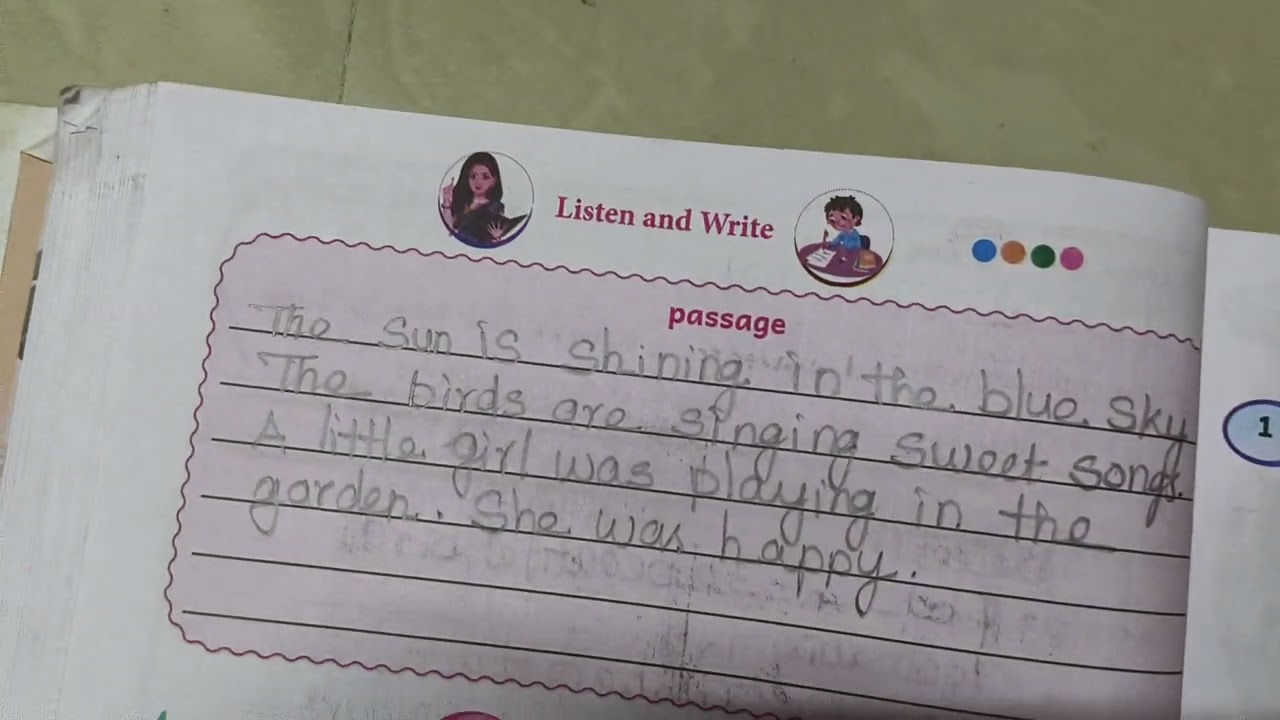 Listen and Write
passage
The Sun is shining in the blue sky
The birds are singing sweet songs.
A little girl was playing in the
garden. She was happy.
1